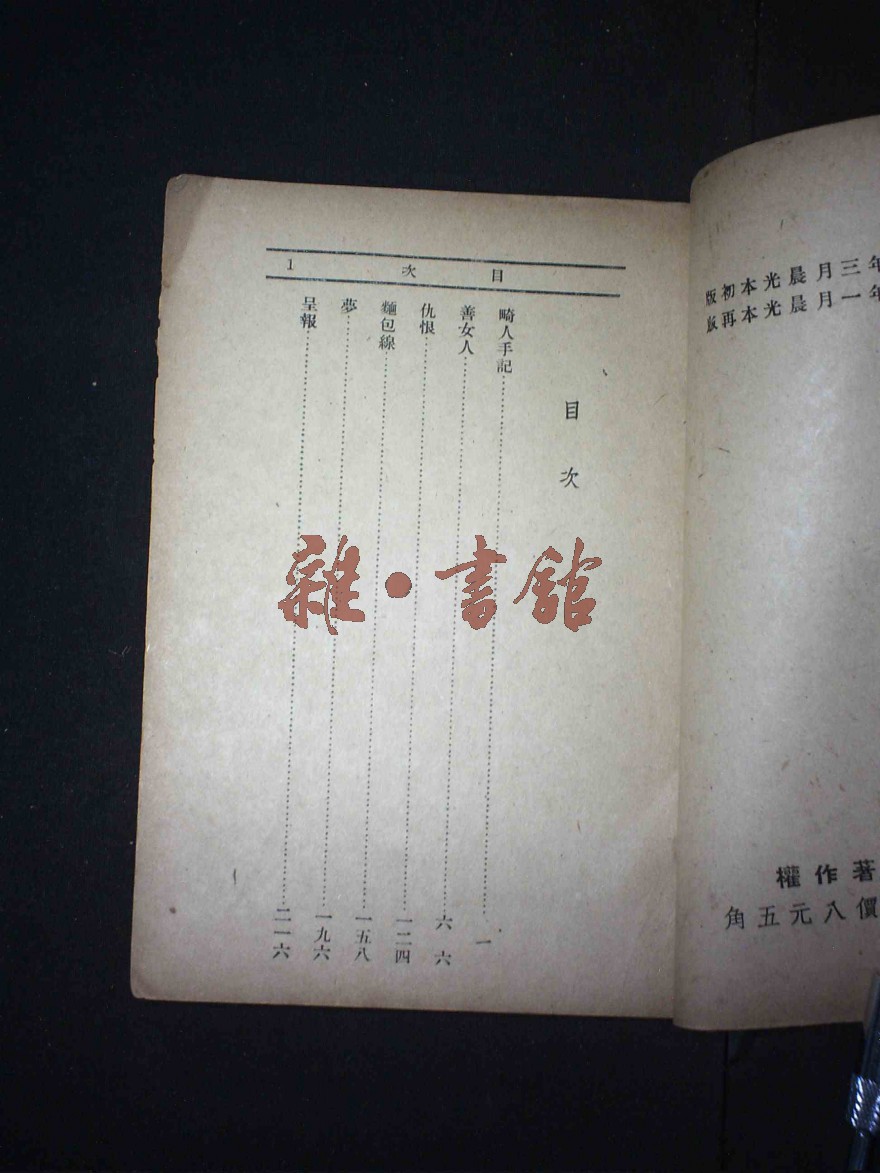 年三月晨光本初版
年一月晨光本再版
著作權
價八元五角
目次 1
目次
畸人手記 一
善女人 六六
仇恨 一二四
麵包線 一五八
夢 一九六
呈報 二一六
雜·書館